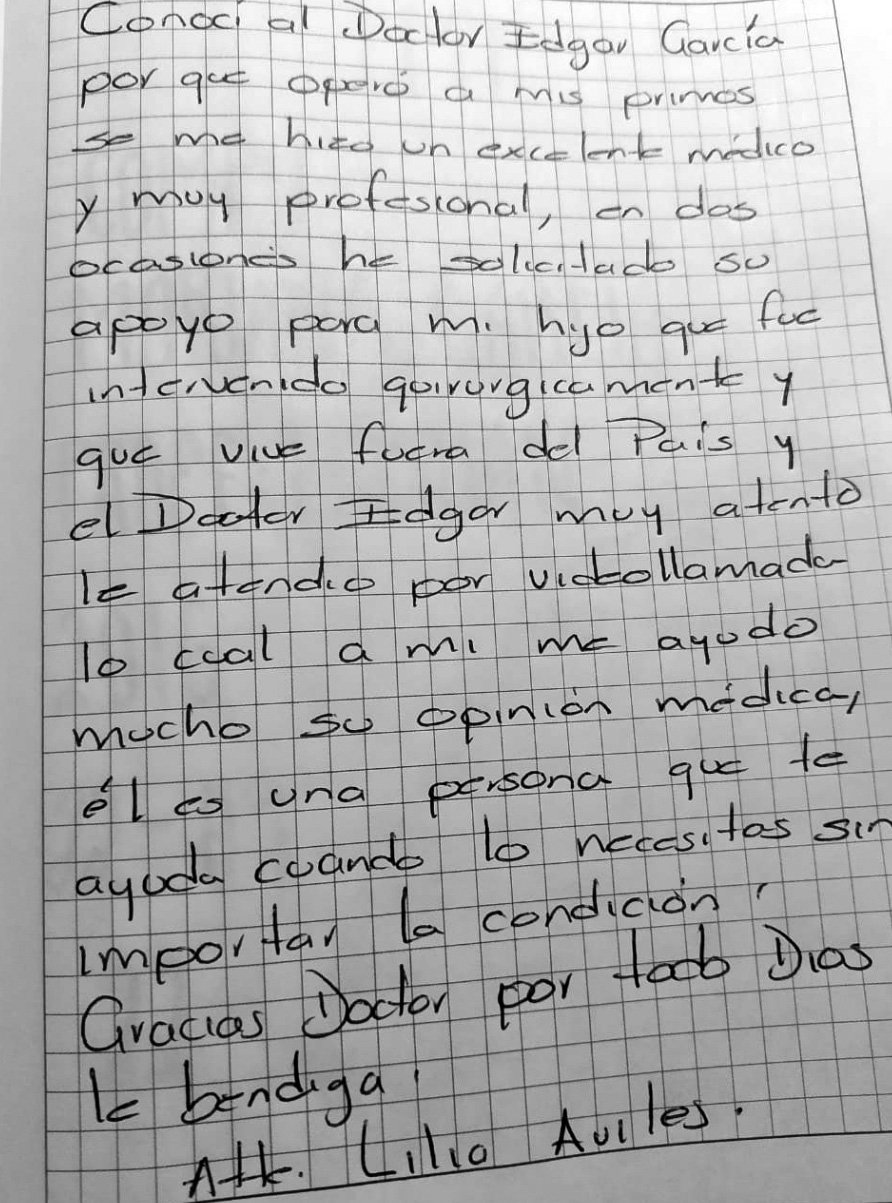 Conoci al Doctor Edgar García
por que operó a mis primos
se me hizo un excelente médico
y muy profesional, en dos
ocasiones he solicitado su
apoyo para mi hijo que fue
intervenido quirurgicamente y
que vive fuera del País y
el Doctor Edgar muy atento
le atendio por videollamada
lo cual a mi me ayudo
mucho su opinión médica,
él es una persona que te
ayuda cuando lo necesitas sin
importar la condición,
Gracias Doctor por todo Dios
le bendiga!
Atte. Lilia Aviles.